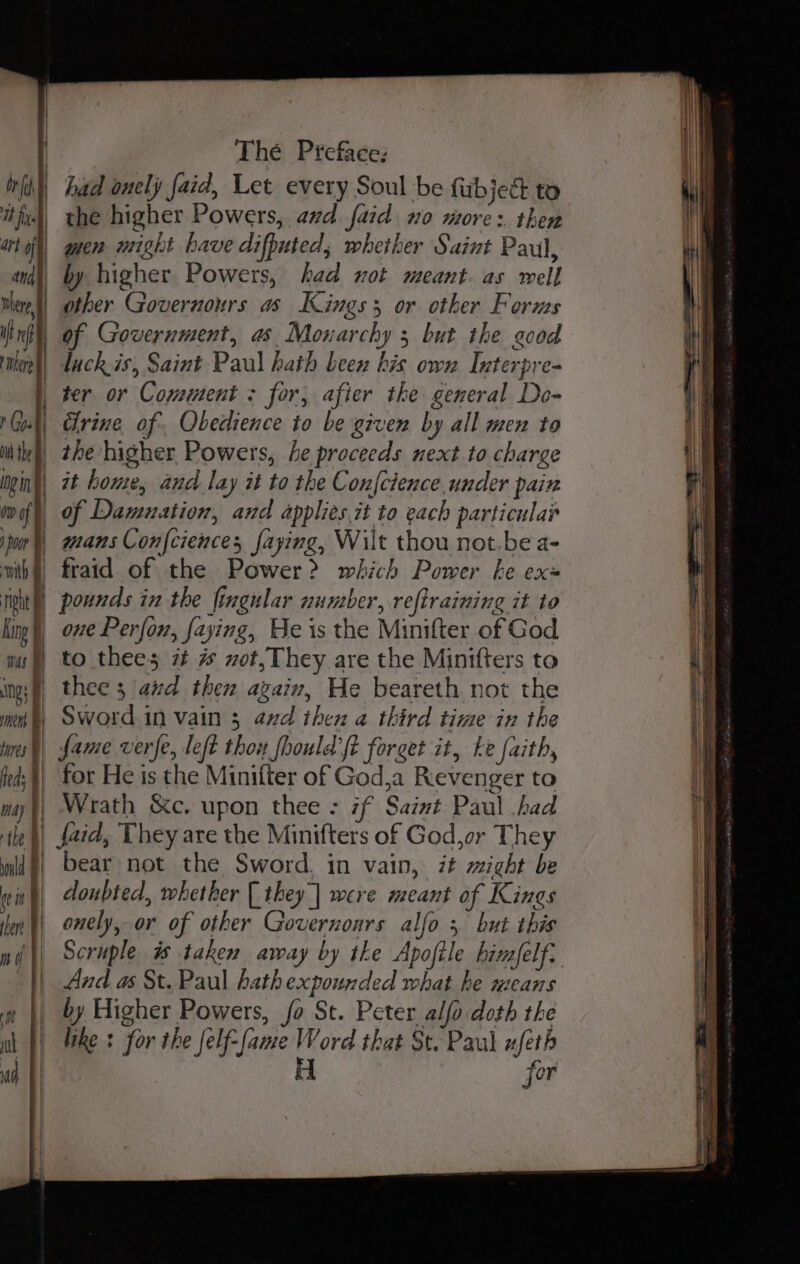 The Preface.
had onely ſaid, Let every Soul be ſubject to
the higher Powers, and ſaid no more: then
men might have diſputed, whether Saint Paul,
by higher Powers, had not meant as well
other Governours as Kings; or other Forms
of Government, as Monarchy; but the good
luck is, Saint Paul hath been his own Interpre-
ter or Comment: for, after the general Do-
ctrine of Obedience to be given by all men to
the higher Powers, he proceeds next to charge
it home, and lay it to the Conſcience under pain
of Damnation, and applies it to each particular
mans Conſcience; ſaying, Wilt thou not be a-
fraid of the Power? which Power he ex-
pounds in the ſingular number, reſtraining it to
one Perſon, ſaying, He is the Miniſter of God
to thee; it is not, They are the Miniſters to
thee; and then again, He beareth not the
Sword in vain; and then a third time in the
ſame verſe, leſt thou ſhould'ſt forget it, he ſaith,
for He is the Miniſter of God, a Revenger to
Wrath &c. upon thee: if Saint Paul had
ſaid, They are the Miniſters of God, or They
bear not the Sword in vain, it might be
doubted, whether [they] were meant of Kings
onely, or of other Governours alſo; but this
Scruple is taken away by the Apoſtle himſelf.
And as St. Paul hath expounded what he means
by Higher Powers, ſo St. Peter alſo doth the
like: for the ſelf-ſame Word that St. Paul uſeth
H for